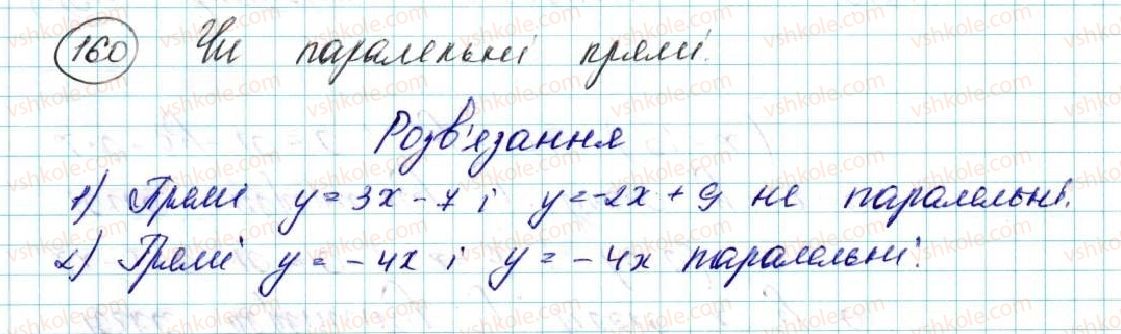 160 Чи паралельні прямі.
Розв'язання
1) Прямі y = 3x - 7 і y = -2x + 9 не паралельні.
2) Прямі y = - 4x і y = - 4x паралельні.